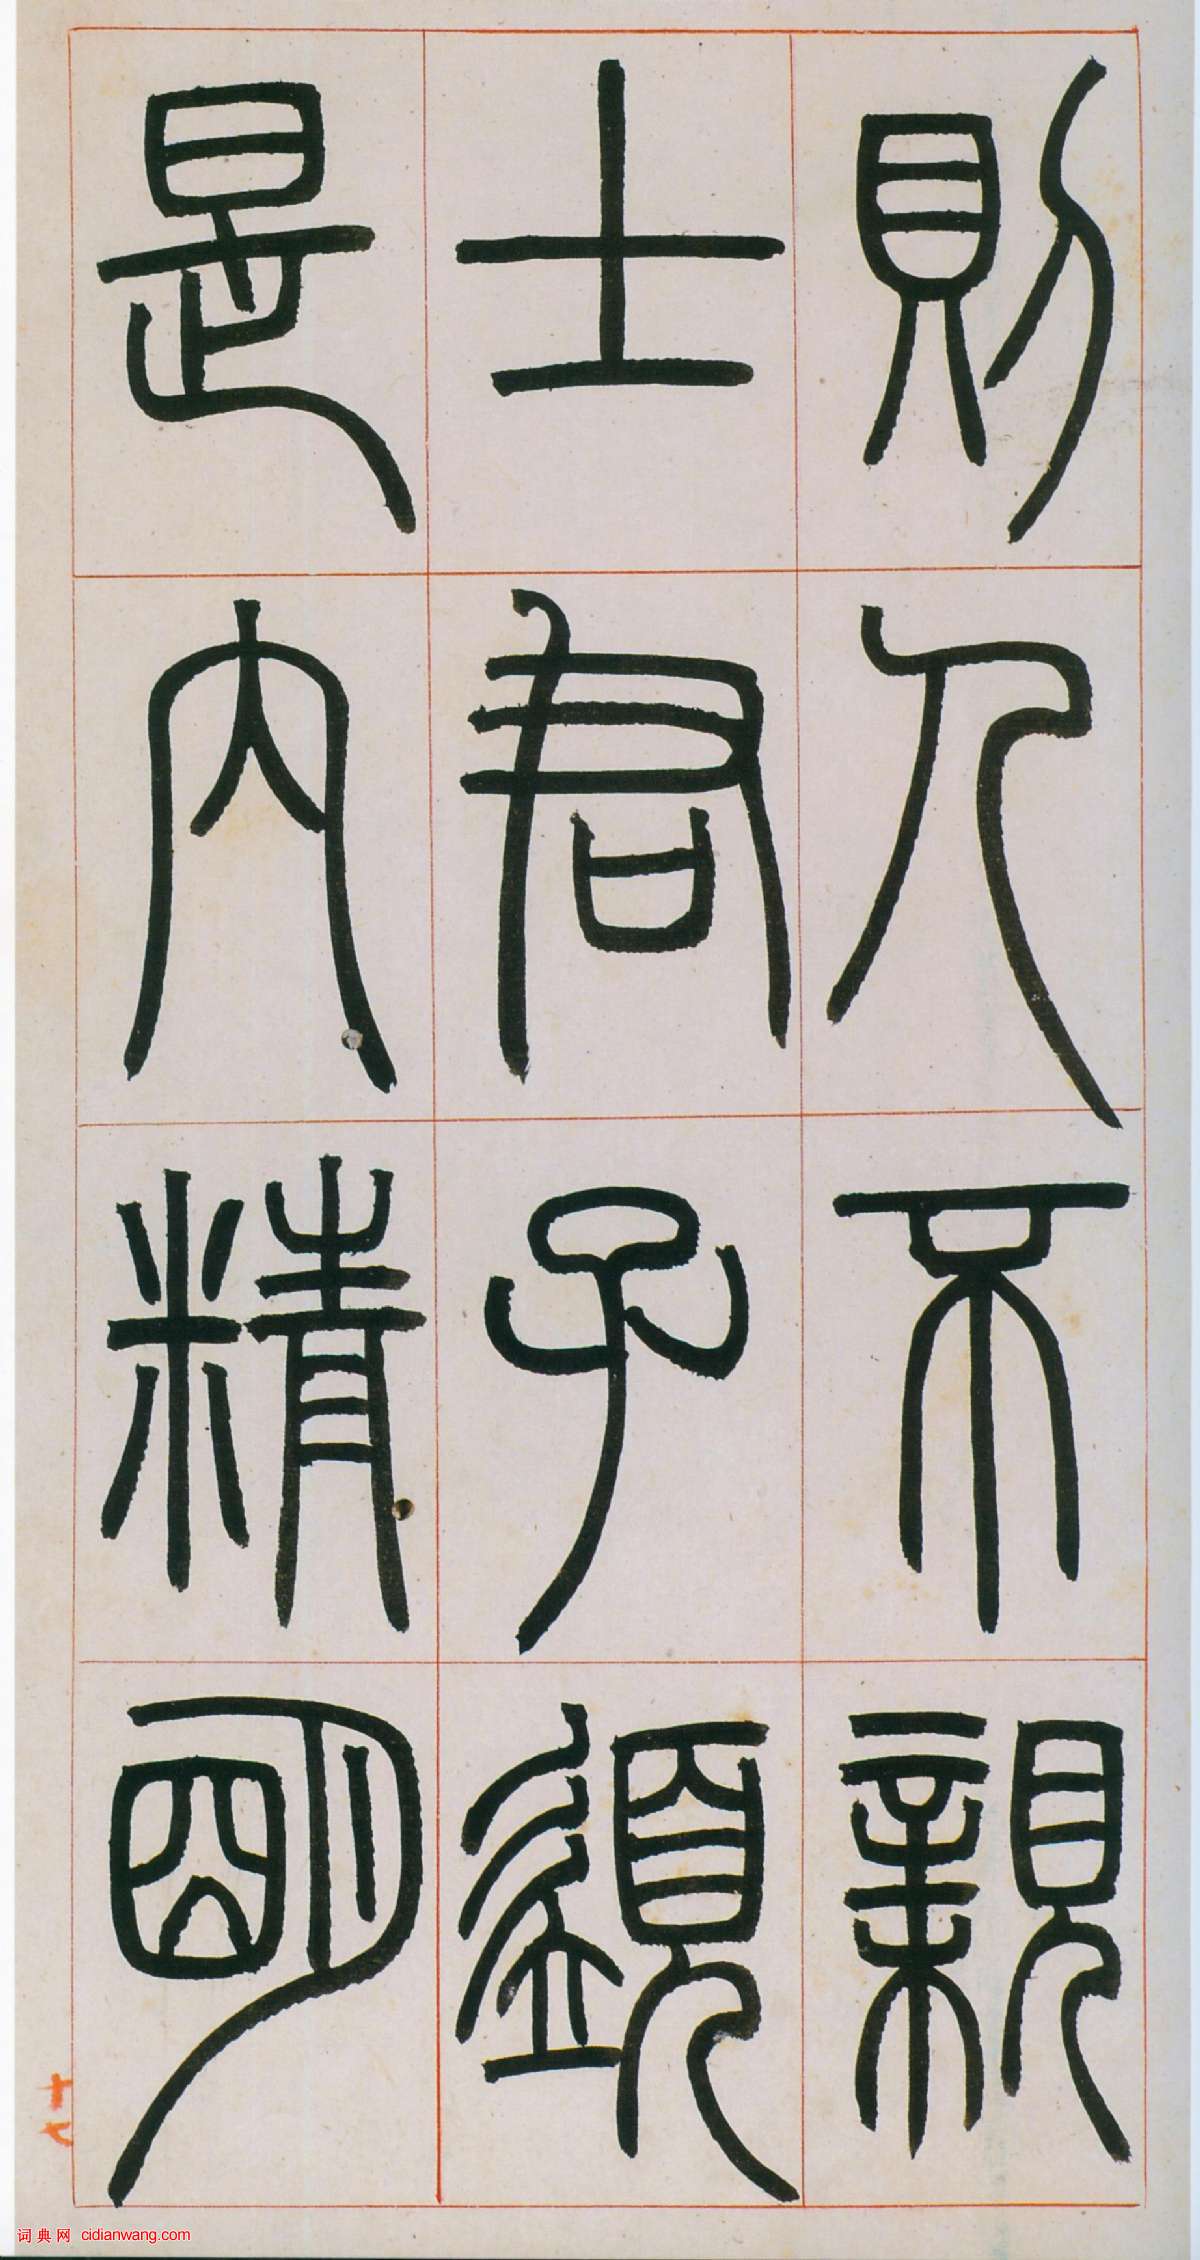 則人不親
士君子須
是內精明
十七
词典网 cidianwang.com